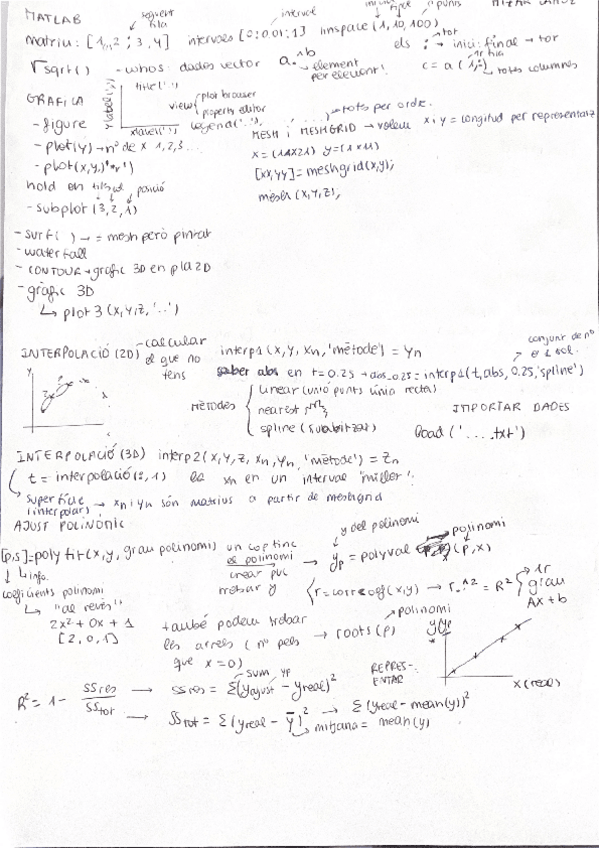 MATLAB
següent fila
interval
punts
matriu: [1, 2 ; 3, 4] intervals [0:0.01:1] linspace (1, 10, 100)
els : → inici:final → tot
√ sqrt( ) - whos: dades vector a.^b
element per element!
c = a(1,:) totes columnes
1r fila
GRÀFICA
title('..')
Ylabel('..')
view plot browser
property editor
xlabel('..')
legend('..', '.....') → tots per ordre.
- figure
- plot(y) → nº de x 1, 2, 3...
- plot(x,y,'*r')
hold on
- subplot(3,2,1)
posició
MESH i MESHGRID → volem x i y = longitud per representar z
x = (1x21) y = (1x11)
[xx,yy] = meshgrid(x,y);
mesh (x,y,z);
- surf( ) → = mesh però pintat
- waterfall
- CONTOUR → gràfic 3D en pla 2D
- gràfic 3D
↳ plot3(x,y,z,'..')
INTERPOLACIÓ (2D) - calcular el que no tens
interp1(x,y,xn,'mètode') = yn
conjunt de nº
saber abs en t=0.25 → abs_0.25 = interp1(t,abs,0.25,'spline')
MÈTODES
linear (unió punts línia recta)
nearest
spline
IMPORTAR DADES
load('.....txt')
INTERPOLACIÓ (3D) interp2(x,y,z,xn,yn,'mètode') = zn
superfície (interpolar) → xn i yn són matrius a partir de meshgrid
AJUST POLINÒMIC
[p,s] = polyfit(x,y,grau polinomi)
info.
coeficients polinomi
"al revés"
2x² + 0x + 1
[2,0,1]
un cop tinc el polinomi
y del polinomi
polinomi
yp = polyval (p,x)
r = corrcoef(x,y) → r.^2 = R²
1r grau
Ax + b
també podem trobar les arrels (nº pels que x=0) → roots(p)
polinomi
REPRESENTAR
x(real)
R² = 1 - SSres / SStot
sum
yp
→ SSres = Σ(yajust - yreal)²
→ SStot = Σ(yreal - ȳ)² → Σ(yreal - mean(y))²
mitjana = mean(y)